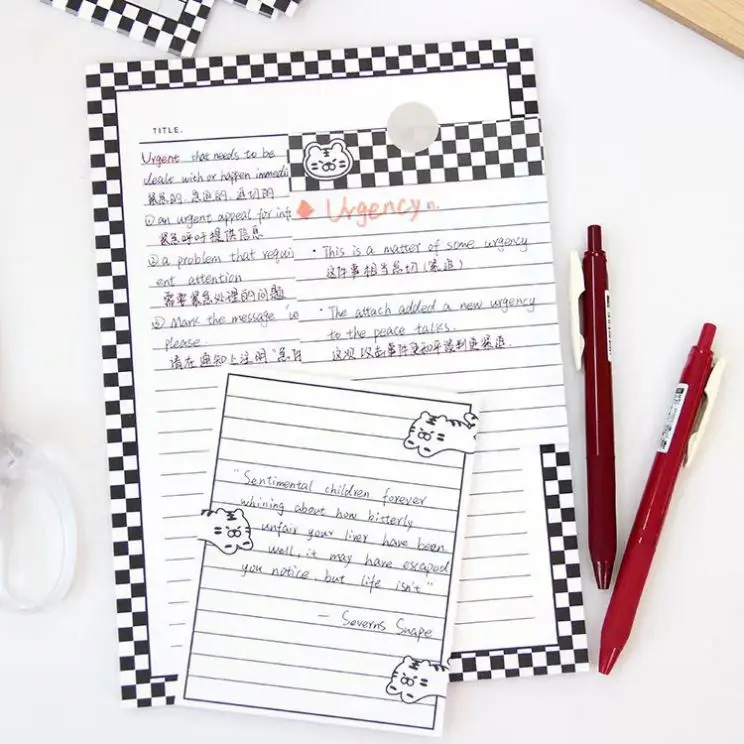 TITLE.
Urgent that needs to be
deals with or happen immedi
紧急的, 急迫的, 迫切的
① an urgent appeal for inf
紧急呼吁提供信息
② a problem that requi
ent attention
需要紧急处理的问题
③ Mark the message 'u
please.
请在通知上注明"急件
Urgency n.
· This is a matter of some urgency
这件事相当急切(紧迫)
· The attach added a new urgency
to the peace talks.
这次攻击事件更和平谈判更紧迫.
"Sentimental children forever
whining about how bitterly
unfair your liver have been
well, it may have escaped
you notice, but life isn't"
— Severns Snape